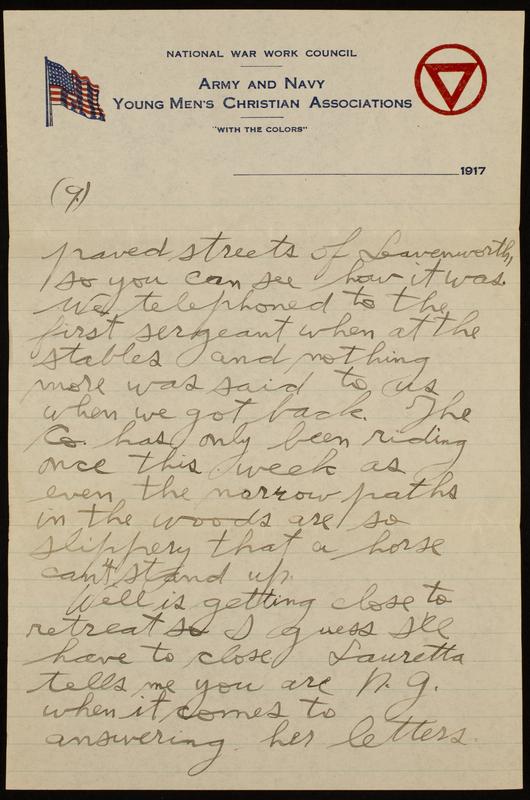 NATIONAL WAR WORK COUNCIL
ARMY AND NAVY
YOUNG MEN'S CHRISTIAN ASSOCIATIONS
"WITH THE COLORS"
1917
(9)
paved streets of Leavenworth,
so you can see how it was.
We telephoned to the
first sergeant when at the
stables and nothing
more was said to us
when we got back. The
Co. has only been riding
once this week as
even the narrow paths
in the woods are so
slippery that a horse
can't stand up.
Well is getting close to
retreat so I guess I'll
have to close Lauretta
tells me you are N.G.
when it comes to
answering her letters.